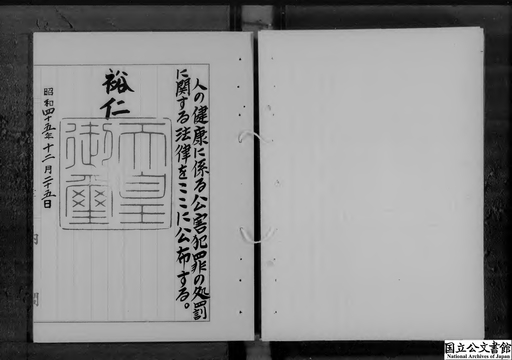 人の健康に係る公害犯罪の処罰
に関する法律をここに公布する。
裕仁
天皇
御璽
昭和四十五年十二月二十五日
内閣
国立公文書館
National Archives of Japan